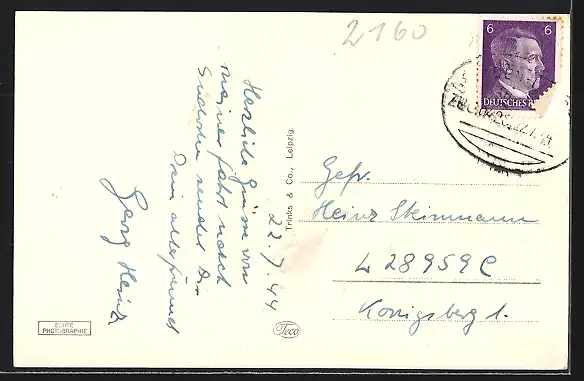 2160
6 6
DEUTSCHES R
Herzliche Grüsse von
meiner Fahrt nach
sendet Dir
Dein alter Freund
Georg Heinz
22.7.44
Trinks & Co., Leipzig.
Gefr.
Heinz Steinmann
L 28959 C
Königsberg 1.
ECHTE
PHOTOGRAPHIE
Trco